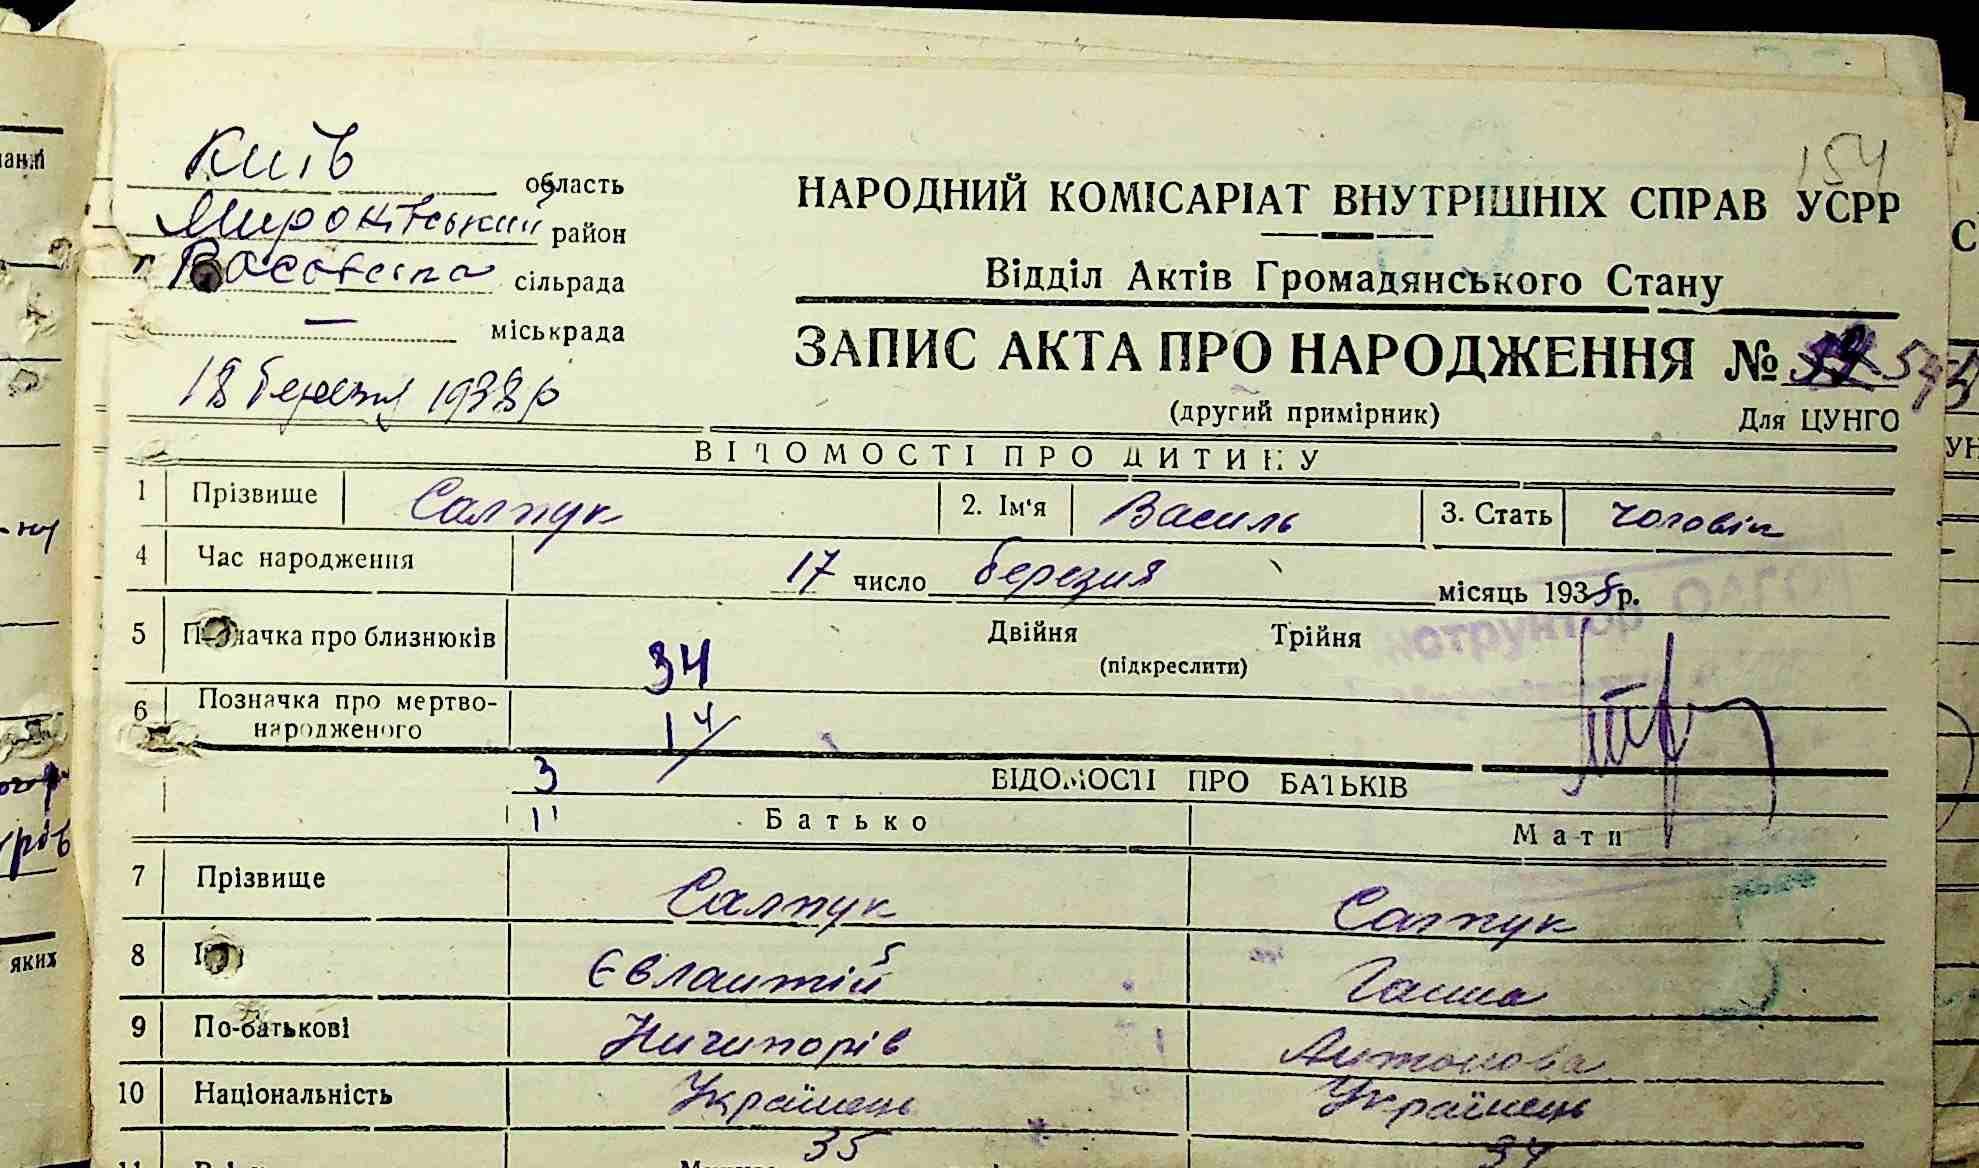 154
Київ область
Миронівський район
сільрада
— міськрада
18 березня 1938 р
НАРОДНИЙ КОМІСАРІАТ ВНУТРІШНІХ СПРАВ УСРР
Відділ Актів Громадянського Стану
ЗАПИС АКТА ПРО НАРОДЖЕННЯ №
(другий примірник) Для ЦУНГО
ВІДОМОСТІ ПРО ДИТИНУ
1 Прізвище Салтук 2. Ім'я Василь 3. Стать чоловік
4 Час народження 17 число березня місяць 1938 р.
5 Позначка про близнюків Двійня Трійня
34 (підкреслити)
6 Позначка про мертво-
народженого 14
3 ВІДОМОСТІ ПРО БАТЬКІВ
11 Батько Мати
7 Прізвище Салтук Салтук
8 Євлантій Ганна
9 По-батькові Ничипорів Антонова
10 Національність Українець Українець
35 34
яких